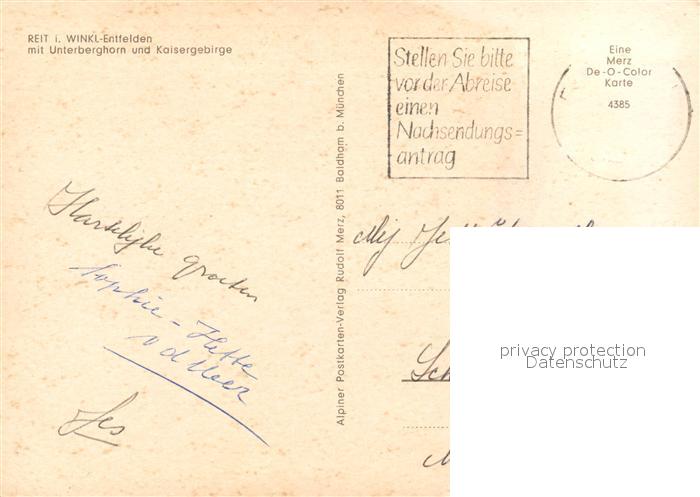 REIT i. WINKL-Entfelden
mit Unterberghorn und Kaisergebirge
Stellen Sie bitte
vor der Abreise
einen
Nachsendungs=
antrag
Eine
Merz
De-O-Color
Karte
4385
Alpiner Postkarten-Verlag Rudolf Merz, 8011 Baldham b. München
Hartelijke groeten
Sophie - Hette
v d Meer
Jes
Mej
privacy protection
Datenschutz